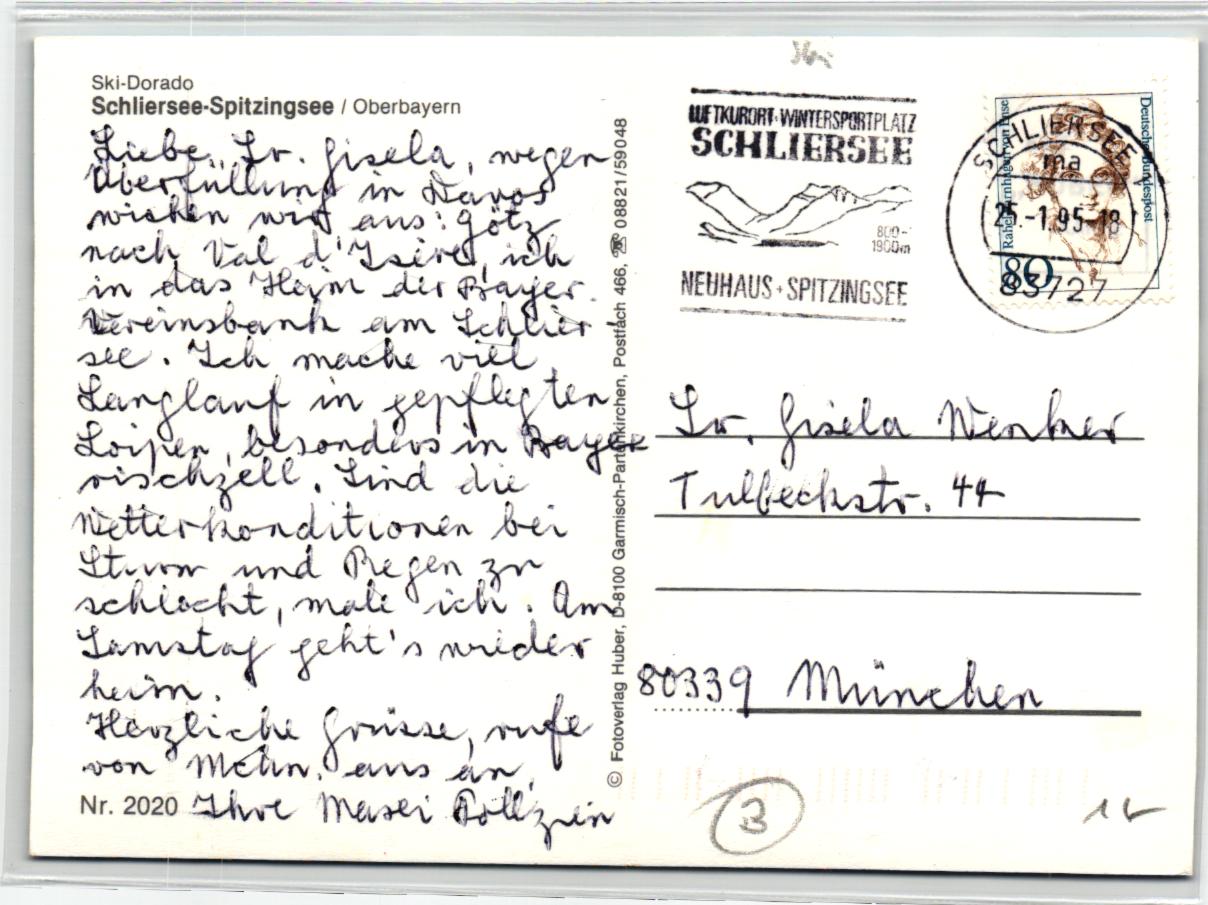 Ski-Dorado
Schliersee-Spitzingsee / Oberbayern
Liebe Fr. Gisela, wegen
Überfüllung in Davos
wichen wir aus: Götz
nach Val d'Isère, ich
in das Heim der Bayer.
Vereinsbank am Schlier
see. Ich mache viel
Langlauf in gepflegten
Loipen, besonders in Baye
rischzell. Sind die
Wetterkonditionen bei
Sturm und Regen zu
schlecht, male ich. Am
Samstag geht's wieder
heim.
Herzliche Grüsse, rufe
von Mchn. aus an,
Ihre
Nr. 2020
© Fotoverlag Huber, D-8100 Garmisch-Partenkirchen, Postfach 466, ☏ 08821/59048
LUFTKURORT·WINTERSPORTPLATZ
SCHLIERSEE
800-
1900m
NEUHAUS + SPITZINGSEE
SCHLIERSEE 1
ma
25.-1.95-18
83727
Deutsche Bundespost
Rahel Varnhagen von Ense
80
Fr. Gisela
Tulbeckstr. 44
80339 München
3